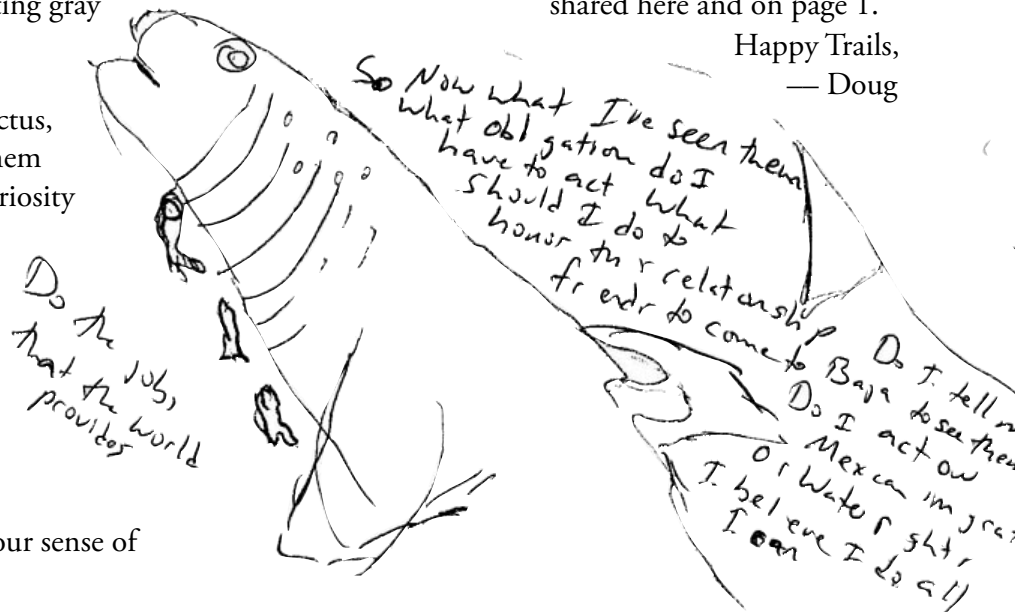 ting gray
ctus,
nem
riosity
our sense of
shared here and on page 1.
Happy Trails,
— Doug
So Now what I've seen them
what obligation do I
have to act what
should I do to
honor thr relationship
friends to come to Baja to see them
Do I tell
Do I act on
Mexican im gra
or Water rght,
I believe I do all
I can
Do the
the jobs,
that the world
provides